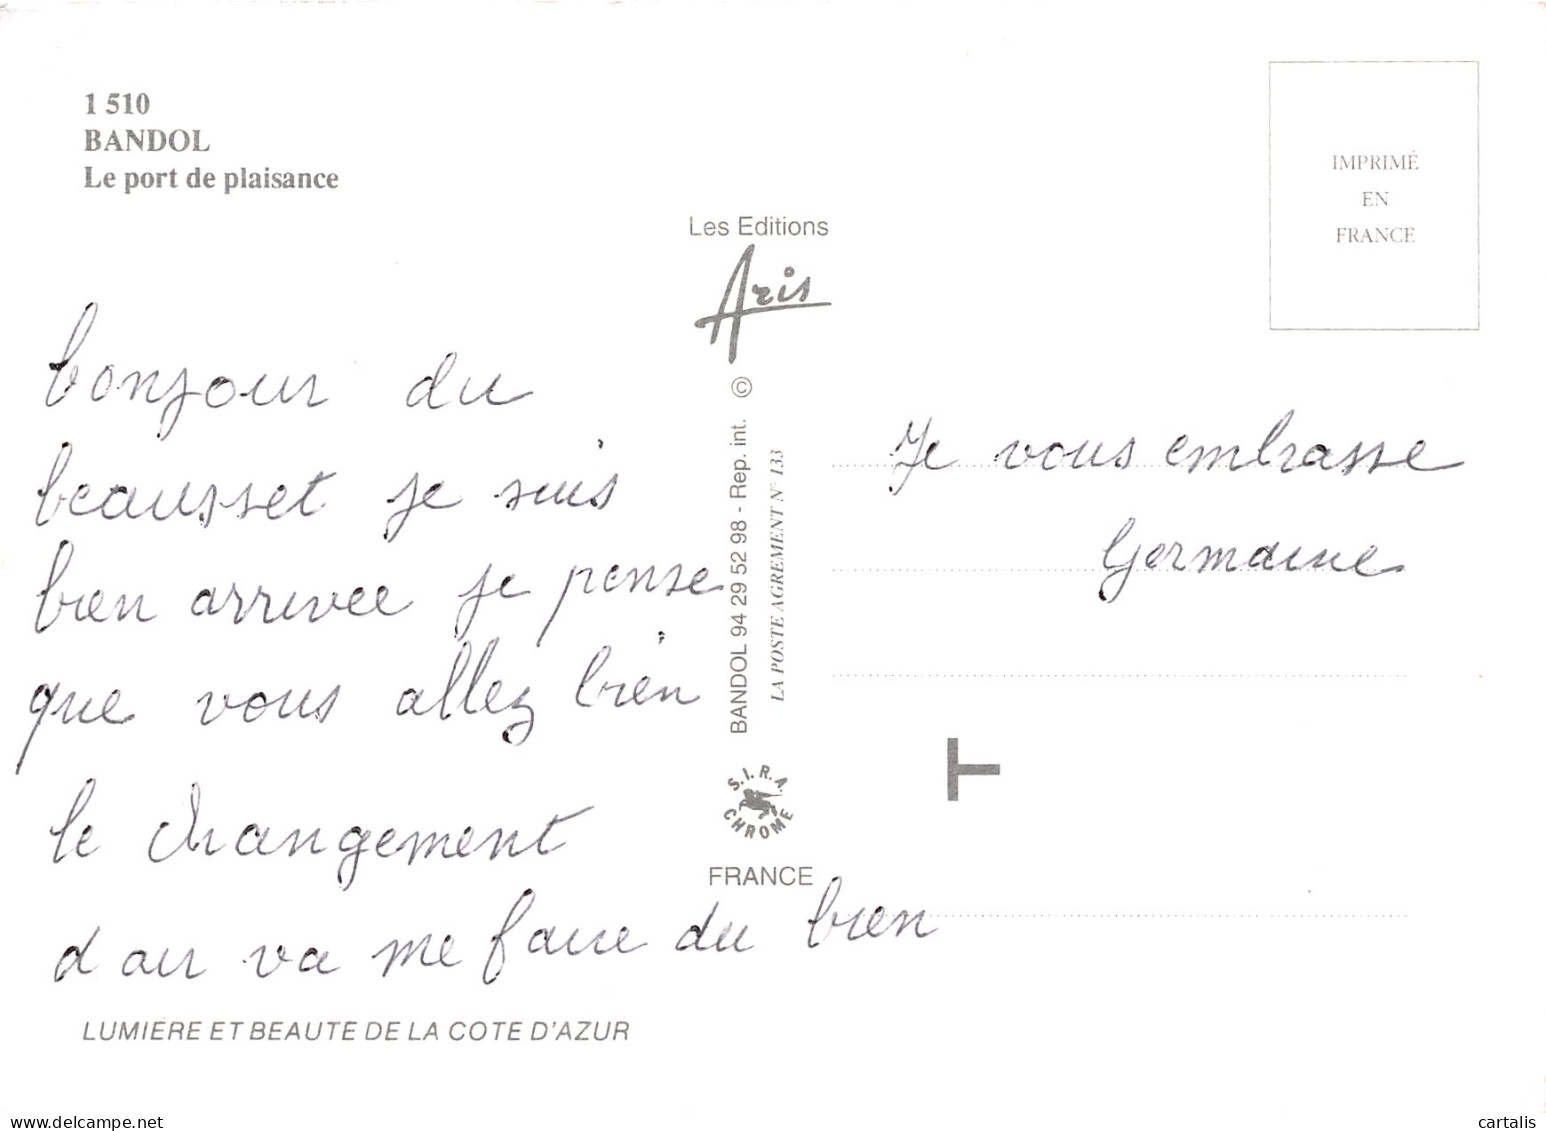 1 510
BANDOL
Le port de plaisance
Les Editions
Aris
©
BANDOL 94 29 52 98 - Rep. int.
LA POSTE AGREMENT N° 133
S.I.R.A.
CHROME
FRANCE
IMPRIMÉ
EN
FRANCE
bonjour du
beausset je suis
bien arrivee je pense
que vous allez bien
le changement
d air va me faire du bien
Je vous embrasse
Germaine
T
LUMIERE ET BEAUTE DE LA COTE D'AZUR
delcampe.net
cartalis